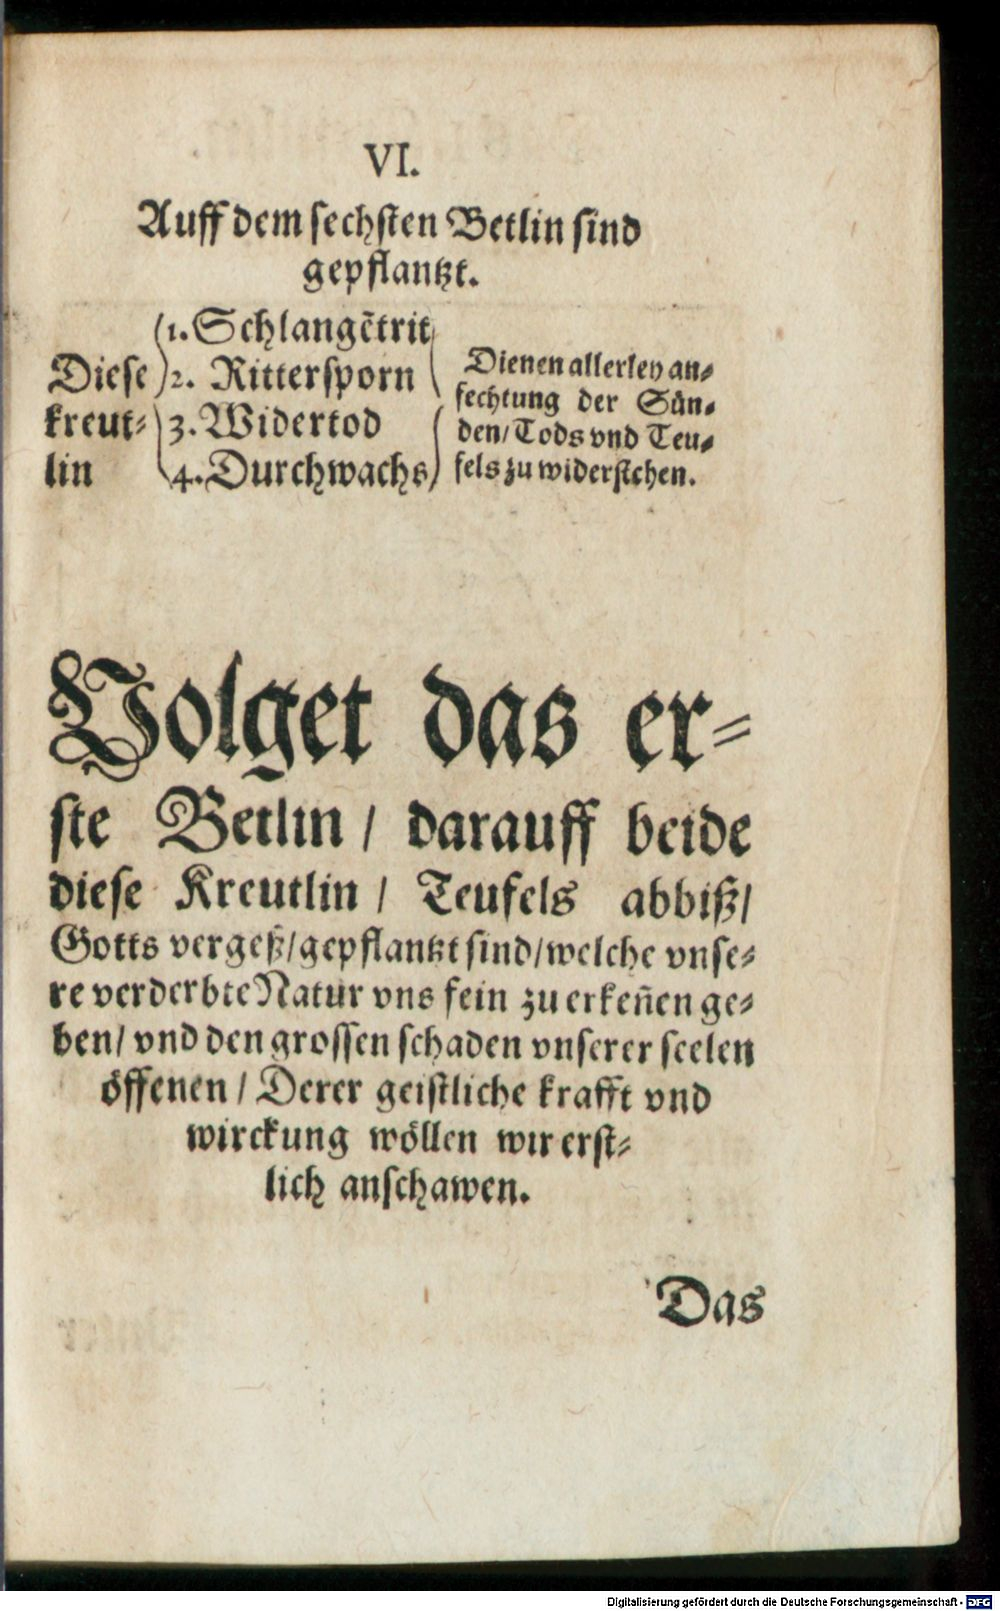 VI.
Auff dem sechsten Betlin sind
gepflantzt.
Diese
kreut-
lin
1. Schlangẽtrit
2. Rittersporn
3. Widertod
4. Durchwachs
Dienen allerley an-
fechtung der Sün-
den/ Tods vnd Teu-
fels zu widerstehen.
Volget das er-
ste Betlin / darauff beide
diese Kreutlin / Teufels abbiß/
Gotts vergeß/ gepflantzt sind/ welche vnse-
re verderbte Natur vns fein zu erkeñen ge-
ben/ vnd den grossen schaden vnserer seelen
öffenen / Derer geistliche krafft vnd
wirckung wöllen wir erst-
lich anschawen.
Das
Digitalisierung gefördert durch die Deutsche Forschungsgemeinschaft - DFG